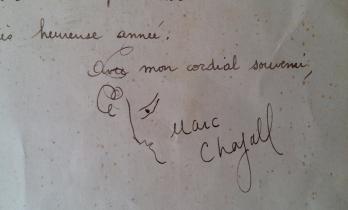 ès heureuse année.
Avec mon cordial souvenir,
Marc
Chagall